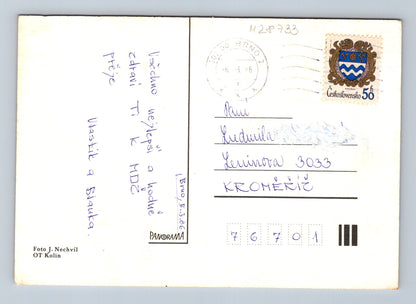 Všechno nejlepší a hodně
zdraví Ti k MDŽ
přeje
Vlastik a Blanka.
Brno, 8.3.86
PANORAMA
Foto J. Nechvíl
OT Kolín
BRNO 2
Československo 50
Paní
Ludmila
Leninova 3033
KROMĚŘÍŽ
7 6 7 0 1